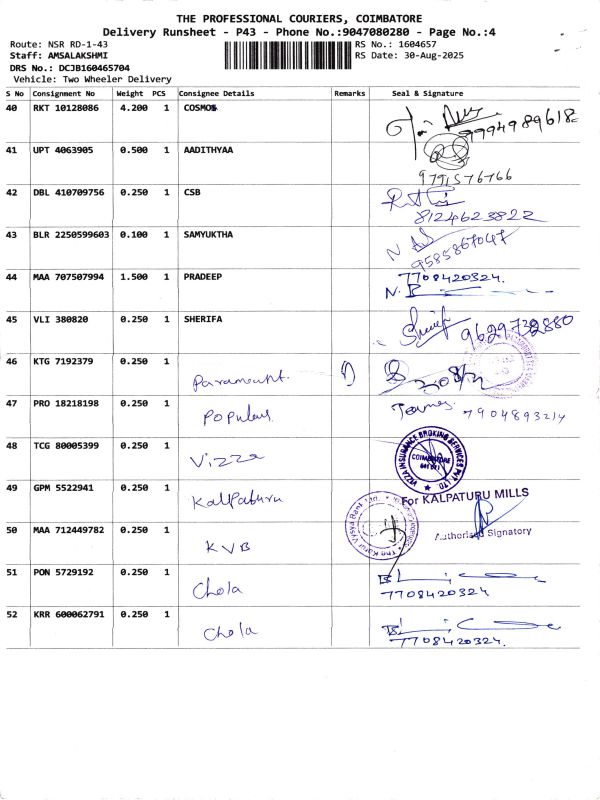 THE PROFESSIONAL COURIERS, COIMBATORE
Delivery Runsheet - P43 - Phone No.:9047080280 - Page No.:4
Route: NSR RD-1-43 RS No.: 1604657
Staff: AMSALAKSHMI RS Date: 30-Aug-2025
DRS No.: DCJB160465704
Vehicle: Two Wheeler Delivery
S No Consignment No Weight PCS Consignee Details Remarks Seal & Signature
40 RKT 10128086 4.200 1 COSMOS 9994989618
41 UPT 4063905 0.500 1 AADITHYAA
9791576766
42 DBL 410709756 0.250 1 CSB
8124623822
43 BLR 2250599603 0.100 1 SAMYUKTHA
9585867047
44 MAA 707507994 1.500 1 PRADEEP 7708420324.
45 VLI 380820 0.250 1 SHERIFA
9629732880
46 KTG 7192379 0.250 1
Paramount.
47 PRO 18218198 0.250 1
Populars 7904893214
48 TCG 80005399 0.250 1
Vizza
VIZZA INSURANCE BROKING SERVICES PVT LTD.
COIMBATORE
641 011
49 GPM 5522941 0.250 1
Kalpaturu
For KALPATURU MILLS
Authorised Signatory
50 MAA 712449782 0.250 1
KVB
The Karur Vysya Bank Ltd.
51 PON 5729192 0.250 1
Chola 7708420324
52 KRR 600062791 0.250 1
Chola 7708420324